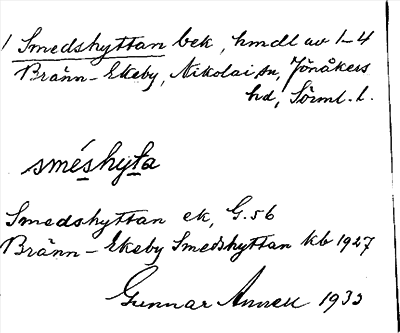 1 Smedshyttan bek, hmdl av 1-4
Bränn-Ekeby, Nikolai sn, Jönåkers
hd, Sörml. l.
sméshyta
Smedshyttan ek, G. 56
Bränn-Ekeby Smedshyttan kb 1927
Gunnar Annell 1932